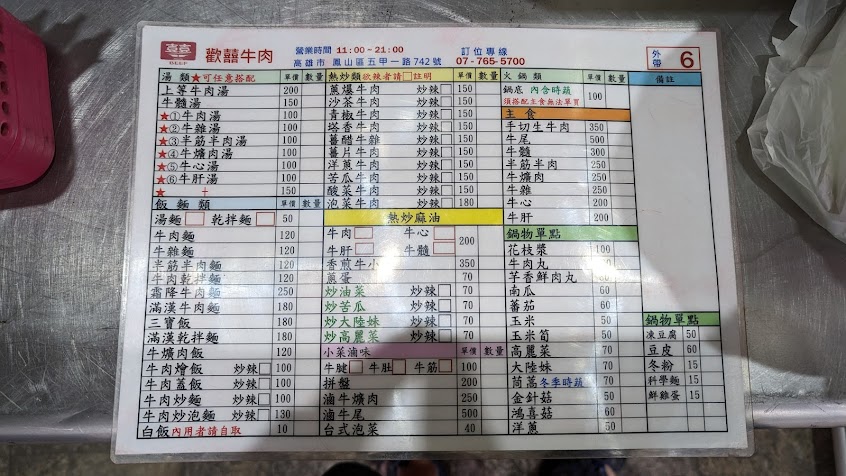 囍 BEEF 歡囍牛肉
營業時間 11:00~21:00
高雄市 鳳山區五甲一路742號
訂位專線
07-765-5700
外帶 6
湯類★可任意搭配 單價 數量
上等牛肉湯 200
牛髓湯 150
★①牛肉湯 100
★②牛雜湯 100
★③半筋半肉湯 100
★④牛爌肉湯 100
★⑤牛心湯 100
★⑥牛肝湯 100
★ + 150
飯麵類 單價 數量
湯麵□ 乾拌麵□ 50
牛肉麵 120
牛雜麵 120
半筋半肉麵 120
牛肉乾拌麵 120
霜降牛肉麵 250
滿漢牛肉麵 180
三寶飯 180
滿漢乾拌麵 180
牛爌肉飯 120
牛肉燴飯 炒辣□ 100
牛肉蓋飯 炒辣□ 100
牛肉炒麵 炒辣□ 100
牛肉炒泡麵 炒辣□ 130
白飯 內用者請自取 10
熱炒類欲辣者請□註明 單價 數量
蔥爆牛肉 炒辣□ 150
沙茶牛肉 炒辣□ 150
青椒牛肉 炒辣□ 150
塔香牛肉 炒辣□ 150
薑醋牛雜 炒辣□ 150
薑片牛肉 炒辣□ 150
洋蔥牛肉 炒辣□ 150
苦瓜牛肉 炒辣□ 150
酸菜牛肉 炒辣□ 150
泡菜牛肉 炒辣□ 180
熱炒麻油
牛肉□ 牛心□ 200
牛肝□ 牛髓□
香煎牛小 350
蔥蛋 70
炒油菜 炒辣□ 70
炒苦瓜 炒辣□ 70
炒大陸妹 炒辣□ 70
炒高麗菜 炒辣□ 70
小菜滷味 單價 數量
牛腱□ 牛肚□ 牛筋□ 100
拼盤 200
滷牛爌肉 250
滷牛尾 500
台式泡菜 40
火鍋類 單價 數量
鍋底 內含時蔬 100
須搭配主食無法單買
主食
手切生牛肉 350
牛尾 500
牛髓 300
半筋半肉 250
牛爌肉 250
牛雜 250
牛心 200
牛肝 200
鍋物單點
花枝漿 100
牛肉丸
芊香鮮肉丸
南瓜 60
蕃茄 60
玉米 50
玉米筍 50
高麗菜 50
大陸妹 50
茼萵 冬季時蔬 50
金針菇 50
鴻喜菇 60
洋蔥 50
備註
鍋物單點
凍豆腐 50
豆皮 60
冬粉 15
科學麵 15
鮮雞蛋 15